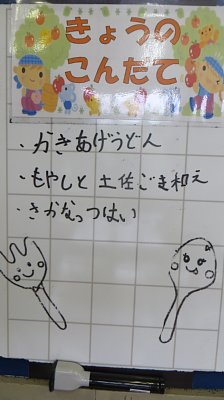 きょうの
こんだて
・かきあげうどん
・もやしと土佐ごま和え
・さかなっつはい